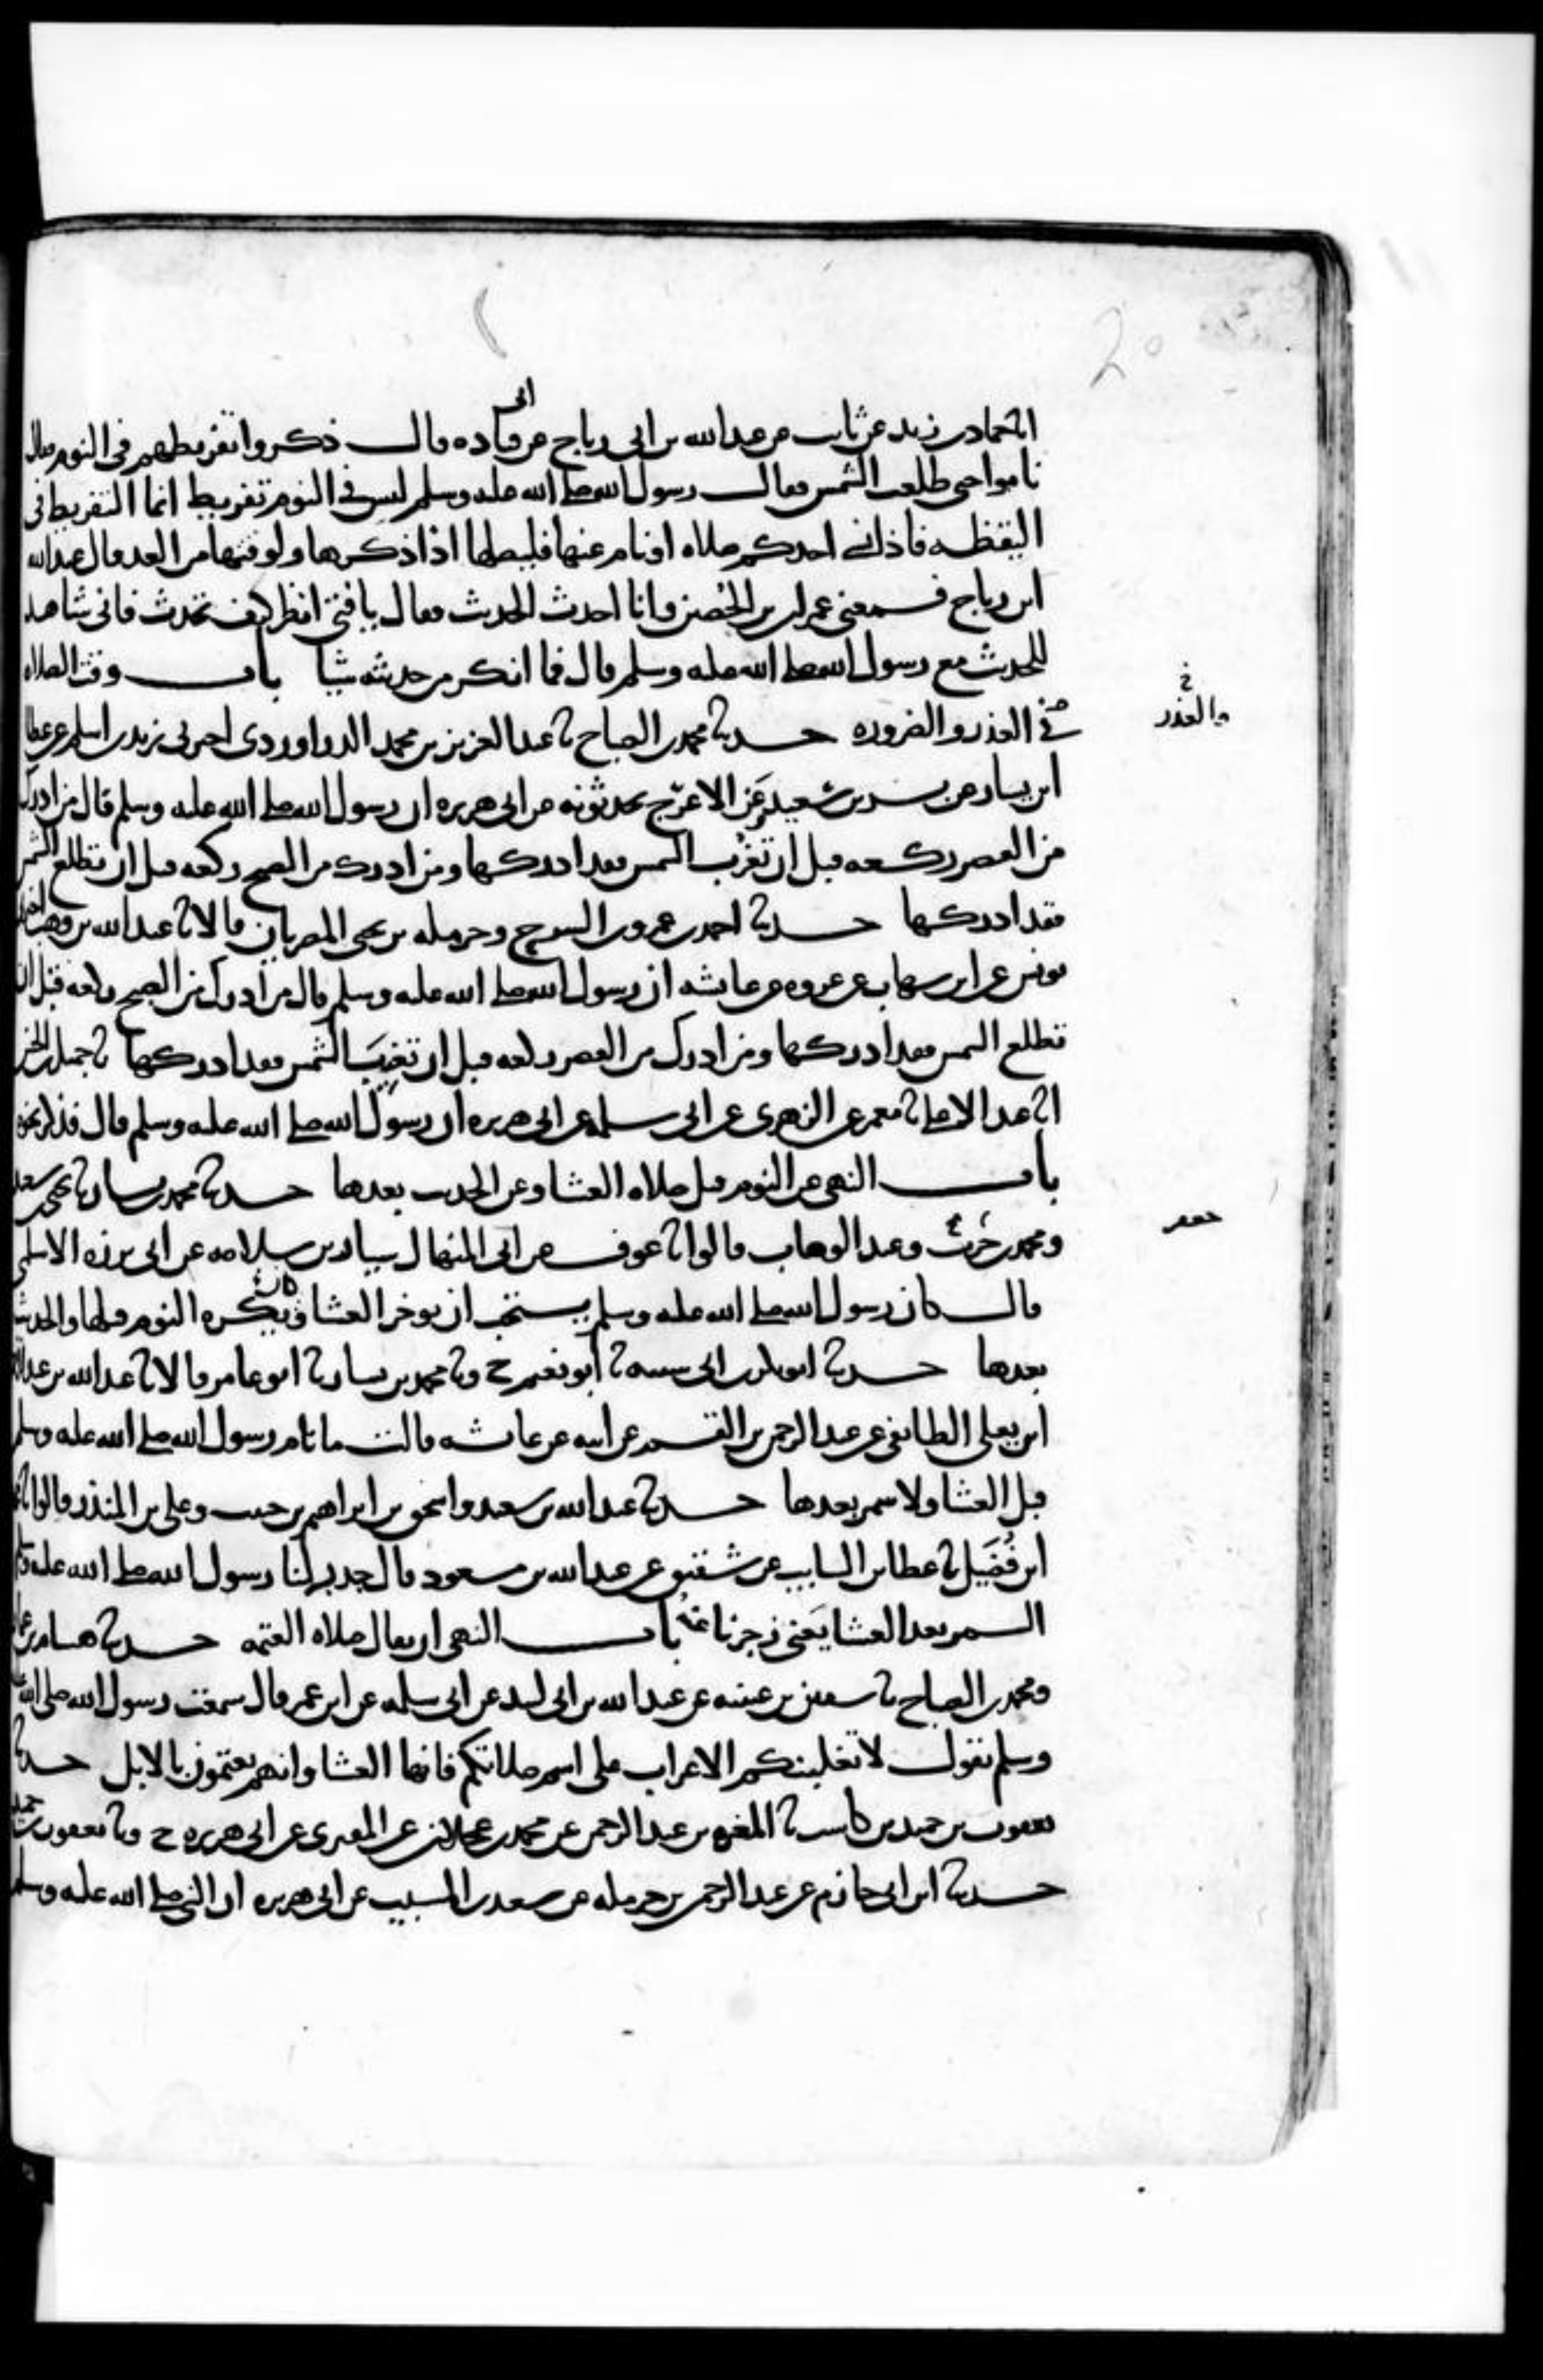 انا حماد بن زيد عن ثابت عن عبد الله بن ابى رباح عن ابى قتاده قال ذكروا تفريطهم فى النوم فقال
ناموا حتى طلعت الشمس فقال رسول الله صلى الله عليه وسلم ليس فى النوم تفريط انما التفريط فى
اليقظه فاذا نسى احدكم صلاه او نام عنها فليصلها اذا ذكرها ولوقتها من الغد قال عبد الله
ابن رباح فسمعنى عمران بن الحصين وانا احدث الحديث فقال يا فتى انظر كيف تحدث فانى شاهد
للحديث مع رسول الله صلى الله عليه وسلم قال فما انكر من حديثه شيا باب وقت الصلاه
فى العذر والضروره حدثنا محمد بن الصباح نا عبد العزيز بن محمد الدراوردى اخبرنى زيد بن اسلم عن عطا
والعذر
ابن يسار وعن بسر بن سعيد وعن الاعرج يحدثونه عن ابى هريره ان رسول الله صلى الله عليه وسلم قال من ادرك
من العصر ركعه قبل ان تغرب الشمس فقد ادركها ومن ادرك من الصبح ركعه قبل ان تطلع الشمس
فقد ادركها حدثنا احمد بن عمرو بن السرح وحرمله بن يحيى المصريان قالا نا عبد الله بن وهب اخبرنى
يونس عن ابن شهاب عن عروه عن عايشه ان رسول الله صلى الله عليه وسلم قال من ادرك من الصبح ركعه قبل ان
تطلع الشمس فقد ادركها ومن ادرك من العصر ركعه قبل ان تغيب الشمس فقد ادركها نا جميل بن الحسن
انا عبد الاعلى نا معمر عن الزهرى عن ابى سلمه عن ابى هريره ان رسول الله صلى الله عليه وسلم قال فذكر نحوه
باب النهى عن النوم قبل صلاه العشا وعن الحديث بعدها حدثنا محمد بن بشار نا يحيى بن سعيد
ومحمد بن وعبد الوهاب قالوا نا عوف عن ابى المنهال سيار بن سلامه عن ابى برزه الاسلمى
جعفر
قال كان رسول الله صلى الله عليه وسلم يستحب ان يوخر العشا وكان يكره النوم قبلها والحديث
بعدها حدثنا ابو بكر بن ابى شيبه نا ابو نعيم ح ونا محمد بن بشار نا ابو عامر قالا نا عبد الله بن عبد الرحمن
ابن يعلى الطايفى عن عبد الرحمن بن القسم عن ابيه عن عايشه قالت ما نام رسول الله صلى الله عليه وسلم
قبل العشا ولا سمر بعدها حدثنا عبد الله بن سعيد واسحق بن ابراهيم بن حبيب وعلى بن المنذر قالوا نا محمد
ابن فضيل نا عطا بن السايب عن شقيق عن عبد الله بن مسعود قال جدب لنا رسول الله صلى الله عليه وسلم
السمر بعد العشا يعنى زجرنا عنه باب النهى ان يقال صلاه العتمه حدثنا هشام بن عمار
ومحمد بن الصباح نا سفين بن عيينه عن عبد الله بن ابى لبيد عن ابى سلمه عن ابن عمر قال سمعت رسول الله صلى الله عليه
وسلم يقول لا تغلبنكم الاعراب على اسم صلاتكم فانها العشا وانهم يعتمون بالابل حدثنا
يعقوب بن حميد بن كاسب نا المغيره بن عبد الرحمن عن محمد بن عجلان عن المقبرى عن ابى هريره ح ونا يعقوب بن حميد
حدثنا ابن ابى حازم عن عبد الرحمن بن حرمله عن سعيد بن المسيب عن ابى هريره ان النبى صلى الله عليه وسلم